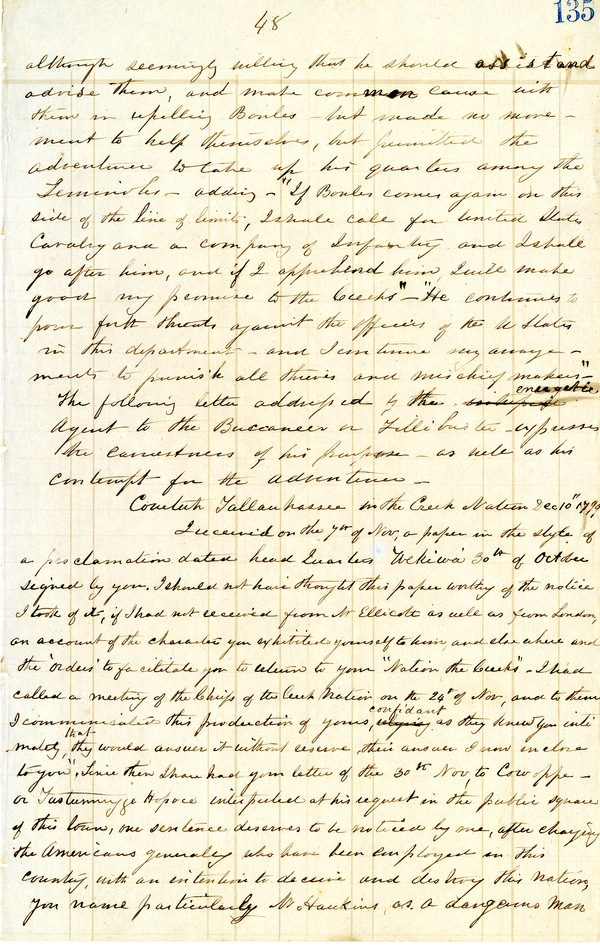 48
135
although seemingly willing that he should assist and
advise them, and make common cause with
them in expelling Bowles - but made no move-
ment to help themselves, but permitted the
adventurer to take up his quarters among the
Seminoles - adding - "If Bowles comes again on this
side of the line of limits, I shall call for United States
Cavalry and a company of Infantry and I shall
go after him, and if I apprehend him, I will make
good my promise to the Creeks" - "He continues to
pour forth threats against the officers of the U States
in this department - and I continue my arrange-
ments to punish all thieves and mischief makers" -
The following letter addressed by the energetic
Agent to the Buccaneer or Fillibuster - expresses
the earnestness of his purpose - as well as his
contempt for the adventurer -
Coweteh Tallauhassee in the Creek Nation Dec 10" 1799
I received on the 7th of Nov, a paper in the style of
a proclamation dated head Quarters Wekiwa 30th of October
signed by you. I should not have thought this paper worthy of the notice
I took of it, if I had not received from Mr Ellicott as well as from London,
an account of the character you exhibited yourself to him, and else where and
the 'orders' to facilitate you to return to your "Nation the Creeks" - I had
called a meeting of the Chiefs of the Creek Nation on the 24th of Nov, and to them
I communicated this production of yours, confidant as they knew you inti
mately, that they would answer it without reserve, their answer I now enclose
to you", Since then I have had your letter of the 30th Nov to Cowoppe -
or Tustunnugge Hopoie interpreted at his request in the public square
of this town, one sentence deserves to be noticed by me, after charging
the Americans generally who have been employed in this
country, with an intention to deceive and destroy this nation,
you name particularly Mr Hawkins, as a dangerous man